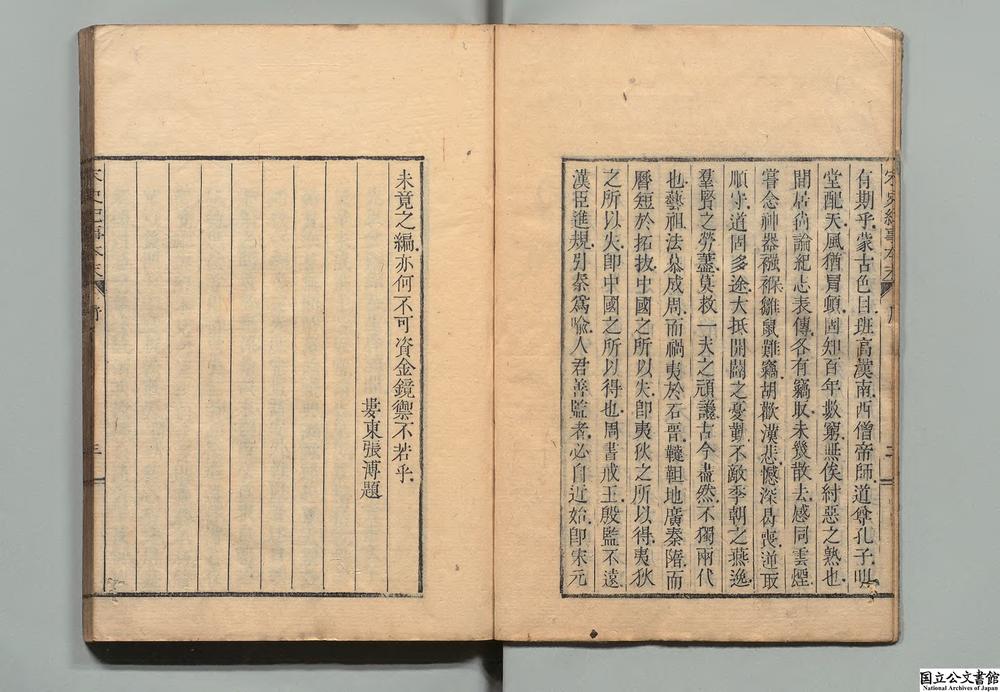 有期乎蒙古色目班高漢南西僧帝師道尊孔子明
堂配天風猶冒頓固知百年數窮無俟紂惡之熟也
間居尚論紀志表傳各有竊取未幾散去感同雲煙
嘗念神器襁褓雛鼠難竊胡歡漢悲憾深曷喪逆取
順守道固多途大抵開闢之憂勤不敵季朝之燕逸
羣賢之勞藎莫救一夫之頑讒古今盡然不獨兩代
也藝祖法慕成周而禍夷於石晉韃靼地廣秦隋而
曆短於拓拔中國之所以失卽夷狄之所以得夷狄
之所以失卽中國之所以得也周書戒王殷監不遠
漢臣進規引秦為喻人君善監者必自近始卽宋元
宋史紀事本末
未竟之編亦何不可資金鏡禦不若乎
婁東張溥題
宋史紀事本末
三
国立公文書館
National Archives of Japan